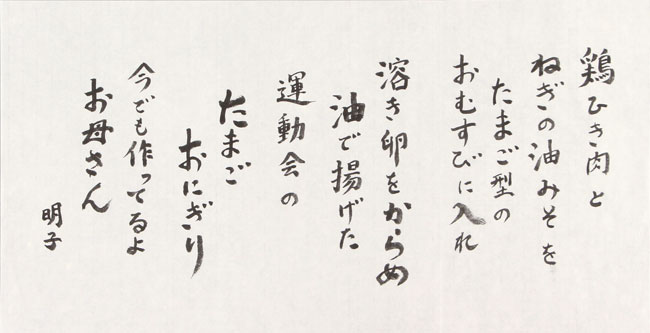 鶏ひき肉と
ねぎの油みそを
たまご型の
おむすびに入れ
溶き卵をからめ
油で揚げた
運動会の
たまご
おにぎり
今でも作ってるよ
お母さん
明子